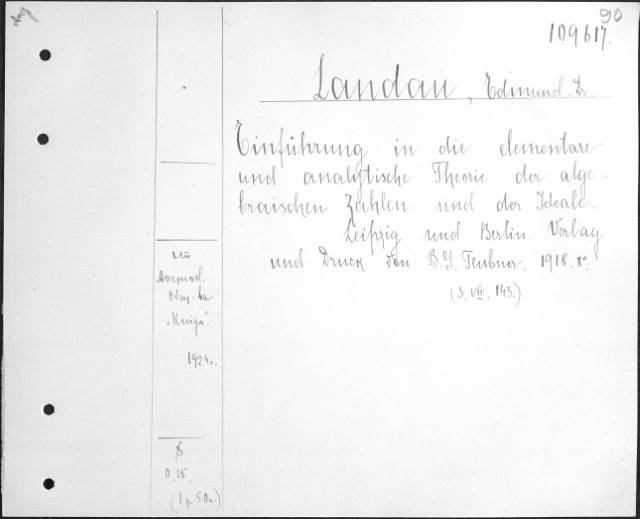 90
109617.
Landau, Edmund. Dr.
Einführung in die elementare
und analytische Theorie der alge-
braischen Zahlen und der Ideale.
Leipzig und Berlin. Verlag
und Druck von B. G. Teubner. 1918. 8°.
(S. VII. 143.)
"Книга".
1924г.
$
0,75.
(1 р. 50к.)